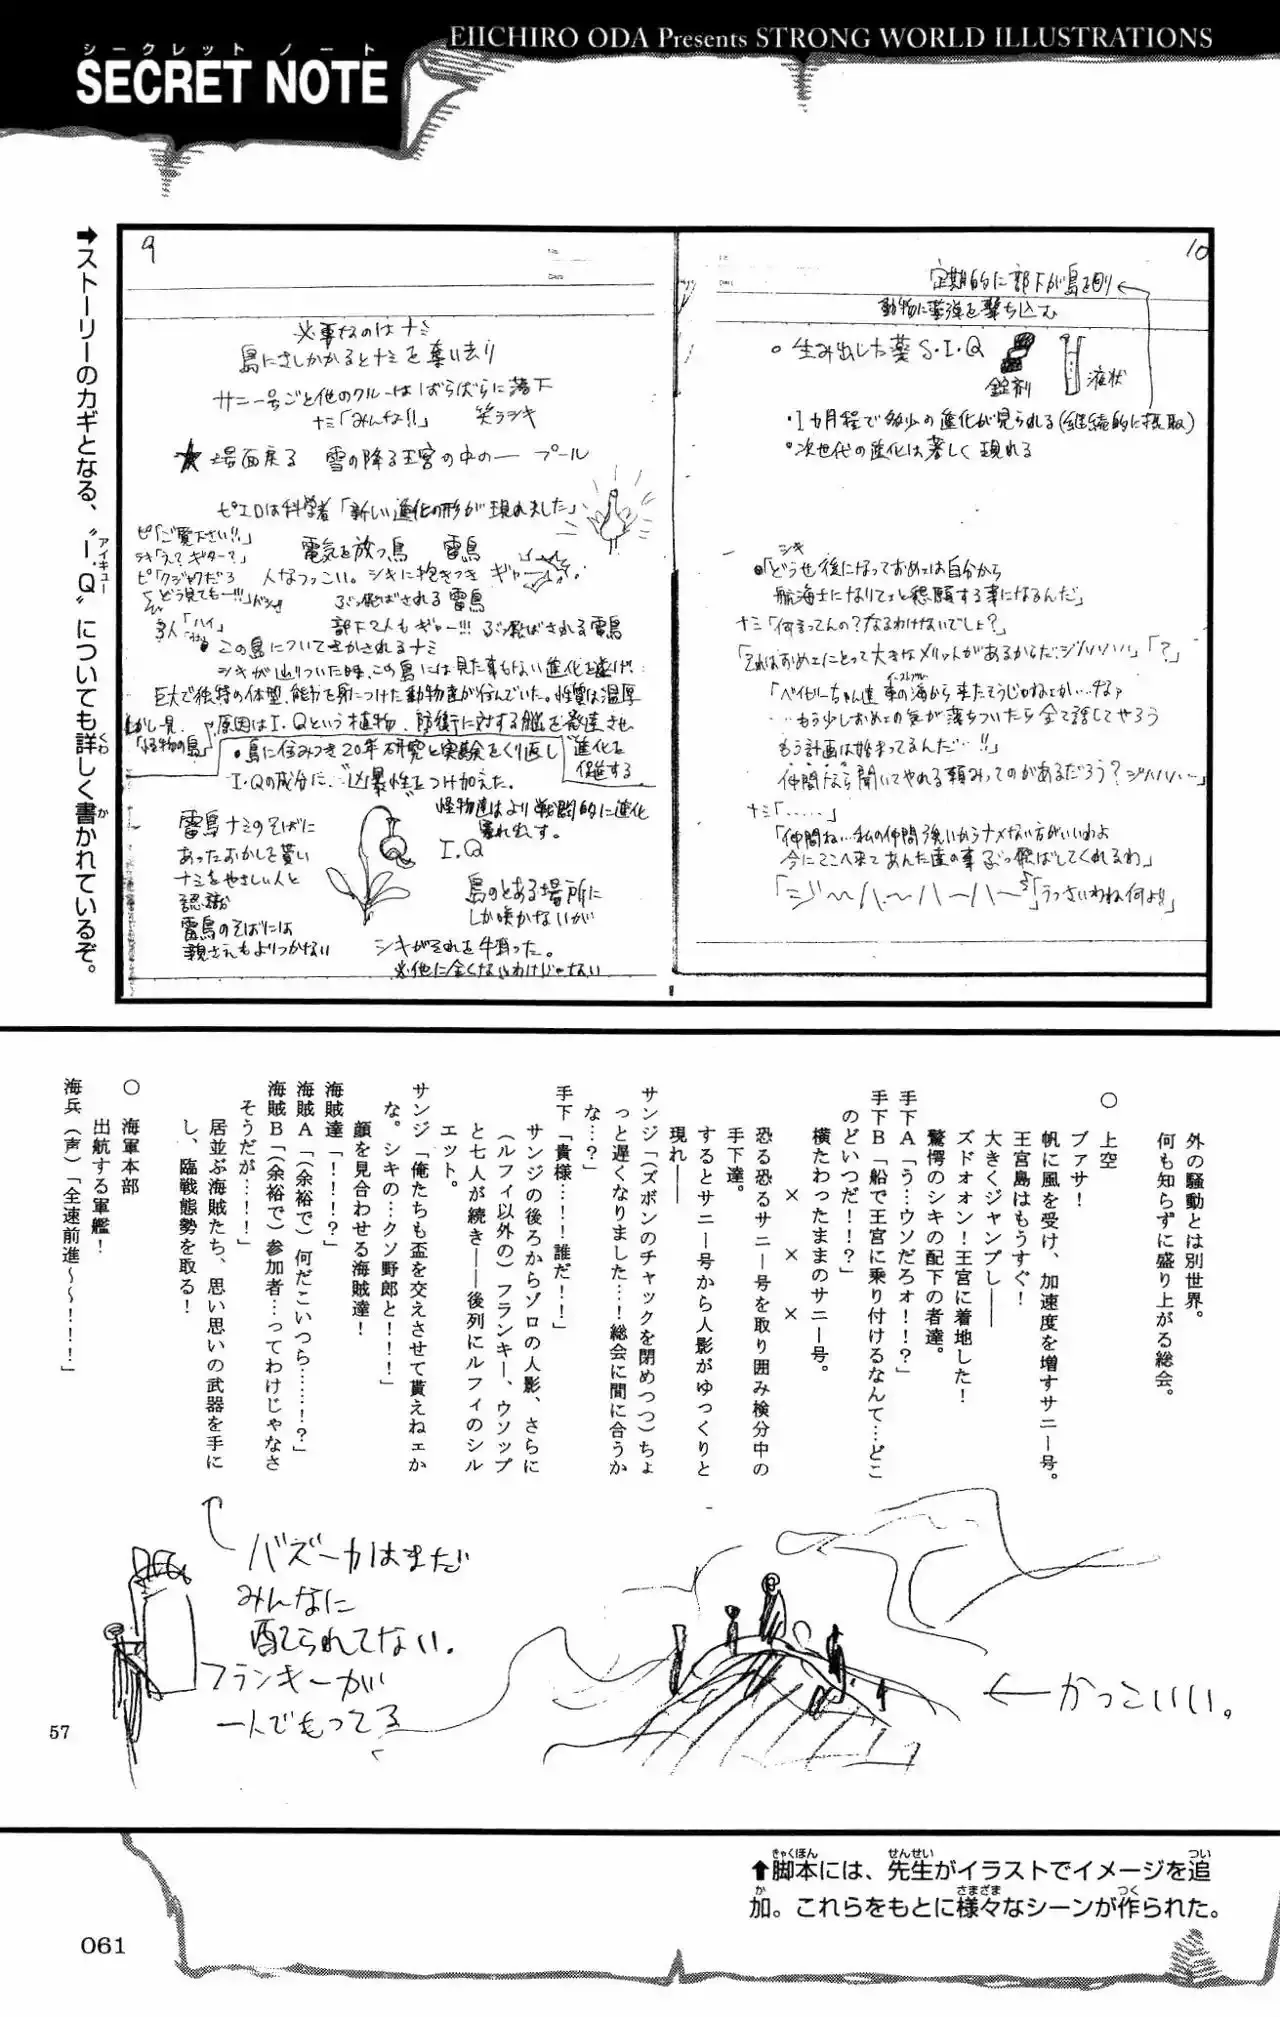 EIICHIRO ODA Presents STRONG WORLD ILLUSTRATIONS
シークレット ノート
SECRET NOTE
➡ストーリーのカギとなる、〝I.Q〟についても詳しく書かれているぞ。
アイキュー
くわ
か
9
島にさしかかるとナミを奪い去り
サニー号ごと他のクルーはばらばらに落下
ナミ「みんな!!」 笑うシキ
★場面戻る 雪の降る王宮の中の― プール
ピエロは科学者「新しい進化の形が現れました」
ピ「ご覧下さい!!」
シキ「え?ギター?」
ピ「クジャクだろ
どう見てもー!!」
「ハイ」
電気を放つ鳥 雷鳥
人なつっこい。シキに抱きつき ギャー
ぶっ飛ばされる雷鳥
部下2人もギャー!!! ぶっ飛ばされる雷鳥
この島についてきかされるナミ
シキが辿りついた時、この島には見た事もない進化を遂げ
巨大で独特の体型、能力を身につけた動物達が住んでいた。性質は温厚
しかし一見
「怪物の島」
原因はI.Qという植物、防衛に対する脳を発達させ
進化を
促進する
●島に住みつき20年 研究と実験をくり返し
I.Qの成分に…"凶暴性"をつけ加えた。
怪物達はより戦闘的に進化
暴れ出す。
雷鳥 ナミのそばに
あったおかしを貰い
ナミをやさしい人と
認識
雷鳥のそばには
親さえもよりつかない
I.Q
島のとある場所に
しか咲かないが
シキがそれを牛耳った。
※他に全くないわけじゃない
10
定期的に部下が島を回り
動物に薬弾を撃ち込む
○ 生み出した薬 S・I・Q
錠剤
液状
・1カ月程で多少の進化が見られる(継続的に摂取)
・次世代の進化は著しく現れる
シキ
●「どうせ後になっておめェは自分から
航海士になりてェと懇願する事になるんだ」
ナミ「何言ってんの?なるわけないでしょ?」
「それはおめェにとって大きなメリットがあるからだ…ジハハハ」「?」
「ベイビーちゃん達 東の海から来たそうじゃねェか…なァ
イーストブルー
…もう少しおめェの気が落ちついたら全て話してやろう
もう計画は始まってるんだ…!!」
仲間なら聞いてやれる頼みってのがあるだろう?ジハハハー」
ナミ「……」
「仲間ね…私の仲間強いからナメない方がいいわよ
今にここへ来てあんた達の事ぶっ飛ばしてくれるわ」
「ジ〜ハ〜ハーハ〜♪」「うっさいわね何よ!!」
外の騒動とは別世界。
何も知らずに盛り上がる総会。
○ 上空
ブァサ!
帆に風を受け、加速度を増すサニー号。
王宮島はもうすぐ!
大きくジャンプし――
ズドオオン!王宮に着地した!
驚愕のシキの配下の者達。
手下A「う…ウソだろォ!!?」
手下B「船で王宮に乗り付けるなんて…どこ
のどいつだ!!?」
× × ×
横たわったままのサニー号。
恐る恐るサニー号を取り囲み検分中の
手下達。
するとサニー号から人影がゆっくりと
現れ――
サンジ「(ズボンのチャックを閉めつつ)ちょ
っと遅くなりました…!総会に間に合うか
な…?」
手下「貴様…!!誰だ!!」
サンジの後ろからゾロの人影、さらに
(ルフィ以外の)フランキー、ウソップ
と七人が続き――後列にルフィのシル
エット。
サンジ「俺たちも盃を交えさせて貰えねェか
な。シキの…クソ野郎と!!!」
顔を見合わせる海賊達!
海賊達「!!!?」
海賊A「(余裕で)何だこいつら……!?」
海賊B「(余裕で)参加者…ってわけじゃなさ
そうだが…!!」
居並ぶ海賊たち、思い思いの武器を手に
し、臨戦態勢を取る!
○ 海軍本部
出航する軍艦!
海兵(声)「全速前進〜〜!!!!」
バズーカはまだ
みんなに
配られてない。
フランキーが
一人でもってる
←かっこいい。
57
⬆脚本には、先生がイラストでイメージを追
加。これらをもとに様々なシーンが作られた。
きゃくほん
せんせい
つい
か
さまざま
つく
061